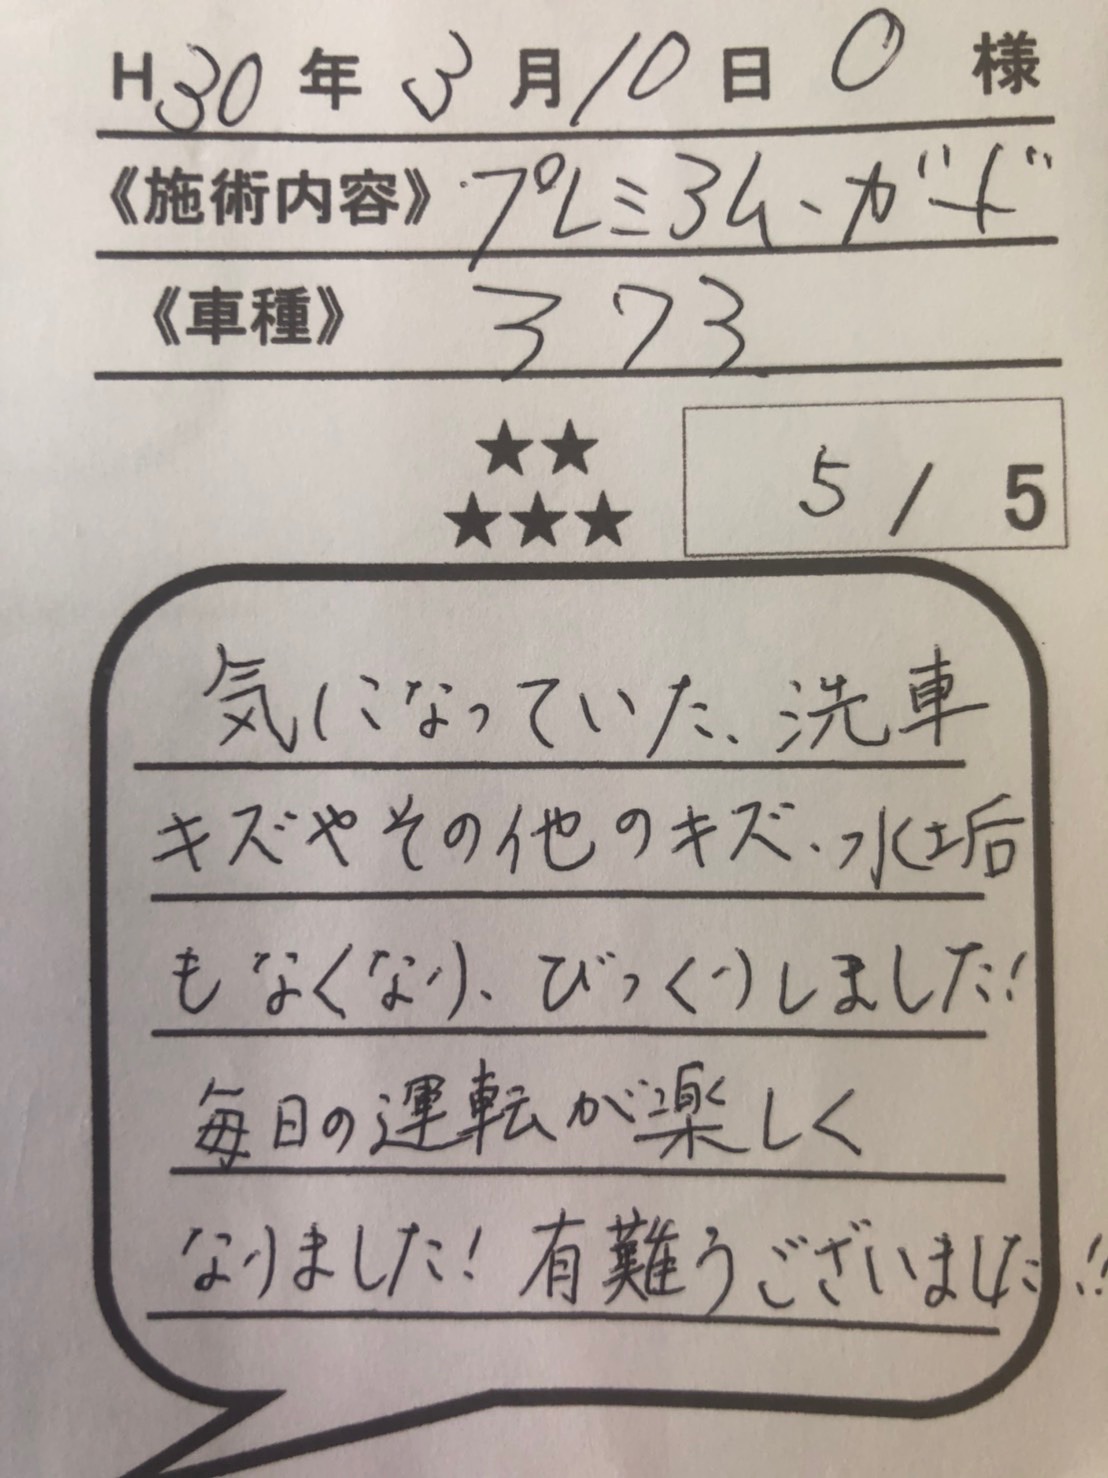 H30年3月10日 O 様
《施術内容》プレミヨム、ガード
《車種》ヨタヨ
★★
★★★
5/5
気になっていた、洗車
キズやその他のキズ、水垢
もなくなり、びっくりしました!
毎日の運転が楽しく
なりました! 有難うございました!!